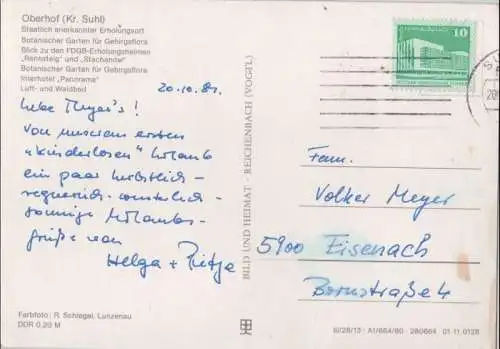 Oberhof (Kr. Suhl)
Staatlich anerkannter Erholungsort
Botanischer Garten für Gebirgsflora
Blick zu den FDGB-Erholungsheimen
„Rennsteig" und „Stachander"
Botanischer Garten für Gebirgsflora
Interhotel „Panorama"
Luft- und Waldbad
20.10.81.
Liebe Meyer's!
Von unserem ersten
"kinderlosen" Urlaub
ein paar herbstlich-
regnerisch-
sonnige Urlaubs-
grüße von
Helga +
BILD UND HEIMAT · REICHENBACH (VOGTL)
10
Fam.
Volker Meyer
5900 Eisenach
Bornstraße 4
Farbfoto: R. Schlegel, Lunzenau
DDR 0,20 M
III/26/13 · A1/664/80 · 280664 01 11 0128